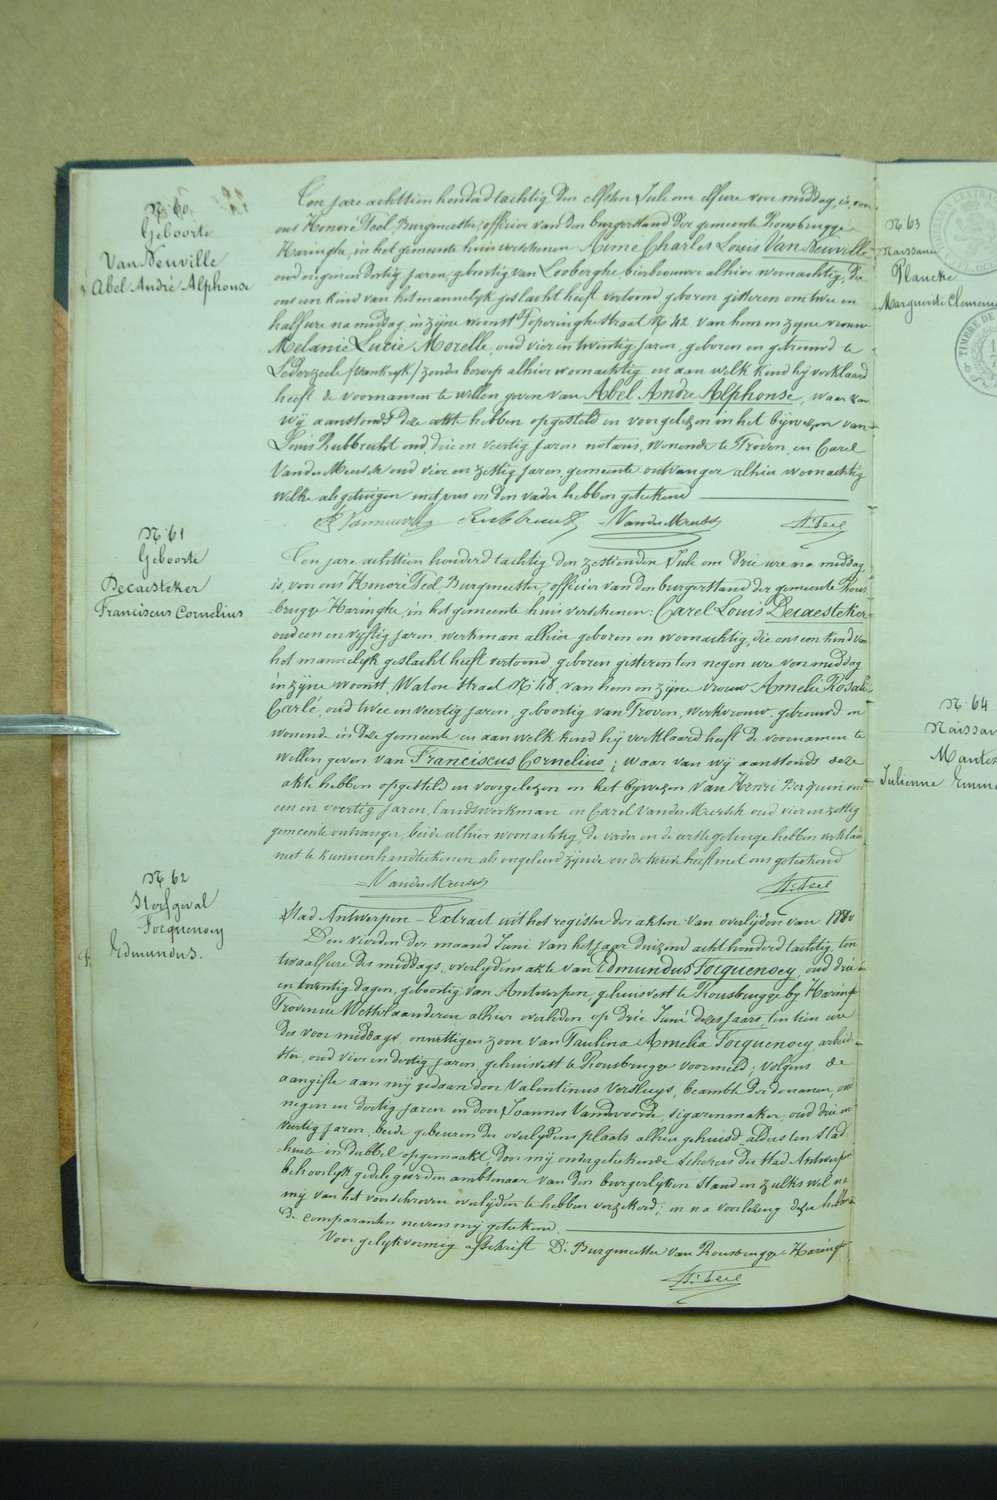 N: 60
Geboorte
Van Neuville
Abel André Alphonse
Ten jare achttien honderd tachtig den elfsten Julii om elfure voor middag, is, voor
ons Honoré Teel Burgmeester, officier van den burgerstand der gemeente Rousbrugge
Haringhe, in het gemeente huis verschenen Aimé Charles Louis Van Neuville
oud en dertig jaren, geboortig van Looberghe bierbrouwer alhier woonachtig, die
ons een kind van het mannelyk geslacht heeft vertoond, geboren gisteren om twee en
halfure na middag in zyne woonst Poperinghestraat N: 42 van hem en zyne vrouw
Melanie Lucie Morelle, oud vier en twintig jaren, geboren en getrouwd te
Lederzeele (Vrankryk) zonder beroep alhier woonachtig en aan welk kind hy verklaard
heeft de voornamen te willen geven van Abel André Alphonse, waar van
wy aanstonds deze akte hebben opgesteld en voorgelezen in het bywezen van
Louis Rubbrecht oud drie en veertig jaren notaris, wonende te Proven, en Carel
Vander Meersch oud vier en zestig jaren gemeente ontvanger alhier woonachtig
welke als getuigen met ons en den vader hebben geteekend
Vanneuville Rubbrecht C. Vander Meersch H: Teel
N: 61
Geboorte
Decaesteker
Franciscus Cornelius
Ten jare achttien honderd tachtig den zestienden Julii om drie ure na middag
is, voor ons Honoré Teel Burgmeester, officier van den burgerstand der gemeente Rous-
brugge Haringhe, in het gemeente huis verschenen: Carel Louis Decaesteker
oud een en vyftig jaren, werkman alhier geboren en woonachtig, die ons een kind van
het mannelyk geslacht heeft vertoond, geboren gisteren ten negen ure voor middag
in zyne woonst, Watou straat N: 48, van hem en zyne vrouw Amelie Rosalie
Carlé, oud twee en veertig jaren, geboortig van Proven, werkvrouw, getrouwd en
wonende in deze gemeente en aan welk kind hy verklaard heeft de voornamen te
willen geven van Franciscus Cornelius; waar van wy aanstonds deze
akte hebben opgesteld en voorgelezen in het bywezen van Henri Berquin oud
een en veertig jaren, landswerkman en Carel Vander Meersch oud vier en zestig
gemeente ontvanger, beide alhier woonachtig, de vader en de eerste getuige hebben verklaard
niet te kunnen handteekenen als ongeleerd zynde en de tweede heeft met ons geteekend
C. Vander Meersch H: Teel
N: 62
Sterfgeval
Focquenoey
Edmundus.
Stad Antwerpen – Extract uit het register der akten van overlyden van 1880
Den vierden der maand Juni van het jaar duizend acht honderd tachtig, ten
twaalfure des middags, overlydens akte van Edmundus Focquenoey, oud drie
en twintig dagen, geboortig van Antwerpen, gehuisvest te Rousbrugge by Haringe
Provincie Westvlaanderen alhier overleden op drie Juni dezes jaars ten tien ure
des voor middags, onwettigen zoon van Paulina Amelia Focquenoey, arbeid-
ster, oud vier en dertig jaren, gehuisvest te Rousbrugge voormeld; volgens de
aangifte aan my gedaan door Valentinus Versluys, beambte der douanen, oud
negen en dertig jaren en door Joannes Vandevoorde, sigarenmaker, oud drie en
veertig jaren, beide gebeuren der overlydens plaats alhier gehuisd, aldus ten Stad-
huize in dubbel opgemaakt, door my ondergeteekende Schepen der Stad Antwerpen
behoorlyk gedelegeerden ambtenaar van den burgerlyken Stand en zulks wel na
my van het voorschreven overlyden te hebben verzekerd; en na voorlezing dezer hebben
de comparanten nevens my geteekend.
Voor gelykvormig afschrift De Burgmeester van Rousbrugge-Haringhe
H: Teel
N: 63
Naissance
Plancke
Marguerite Clemence
TIMBRE DE
N: 64
Naissan
Julienne Emma